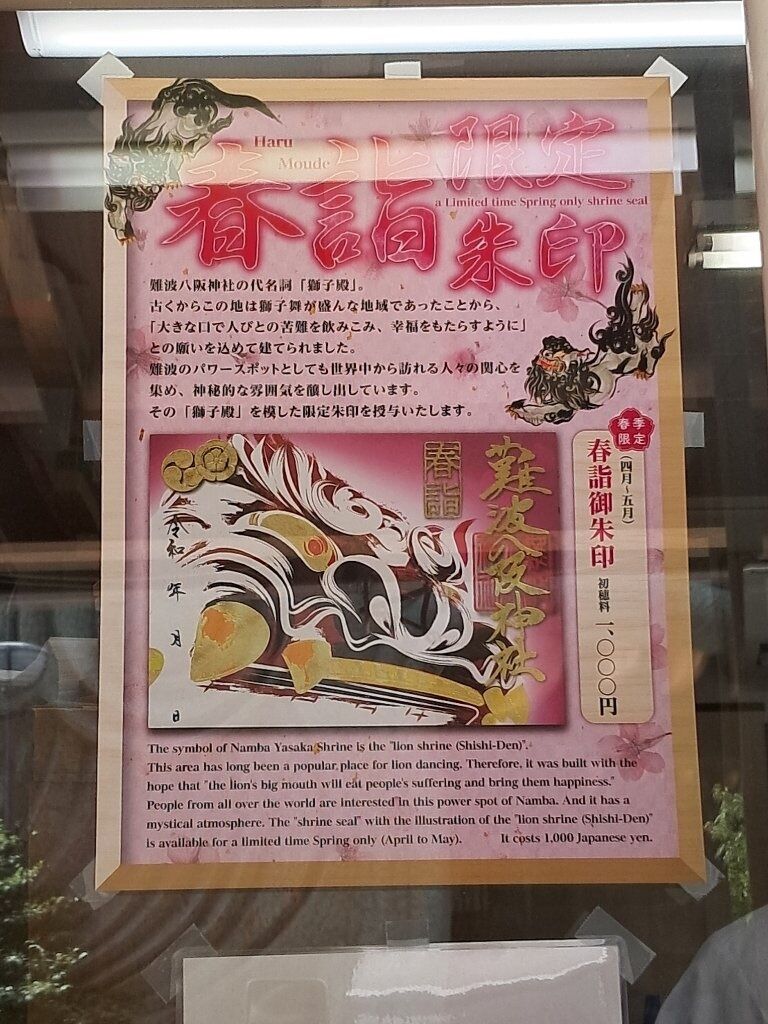 Haru
Moude
春詣
限定
a Limited time Spring only shrine seal
朱印
難波八阪神社の代名詞「獅子殿」。
古くからこの地は獅子舞が盛んな地域であったことから、
「大きな口で人びとの苦難を飲みこみ、幸福をもたらすように」
との願いを込めて建てられました。
難波のパワースポットとしても世界中から訪れる人々の関心を
集め、神秘的な雰囲気を醸し出しています。
その「獅子殿」を模した限定朱印を授与いたします。
春季
限定
春詣御朱印
(四月~五月)
初穂料 一、〇〇〇円
春詣
難波八阪神社
令和 年 月 日
The symbol of Namba Yasaka Shrine is the "lion shrine (Shishi-Den)".
This area has long been a popular place for lion dancing. Therefore, it was built with the
hope that "the lion's big mouth will eat people's suffering and bring them happiness."
People from all over the world are interested in this power spot of Namba. And it has a
mystical atmosphere. The "shrine seal" with the illustration of the "lion shrine (Shishi-Den)"
is available for a limited time Spring only (April to May). It costs 1,000 Japanese yen.